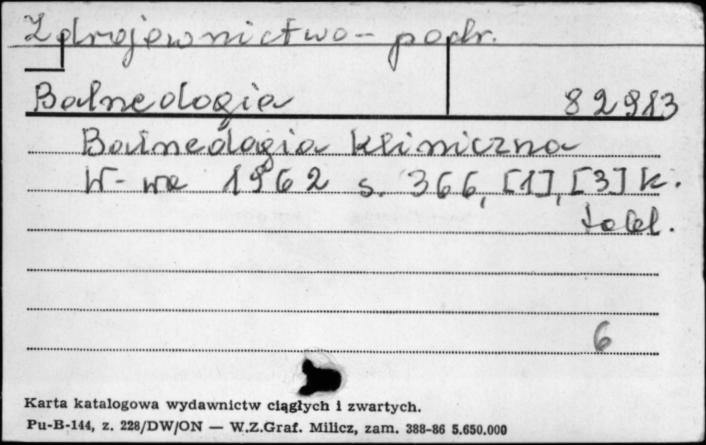 Zdrojownictwo - podr.
Balneologia 82983
Balneologia kliniczna
W-wa 1962 s. 366, [1], [3] k.
tabl.
6
Karta katalogowa wydawnictw ciągłych i zwartych.
Pu-B-144, z. 228/DW/ON — W.Z.Graf. Milicz, zam. 388-86 5.650.000